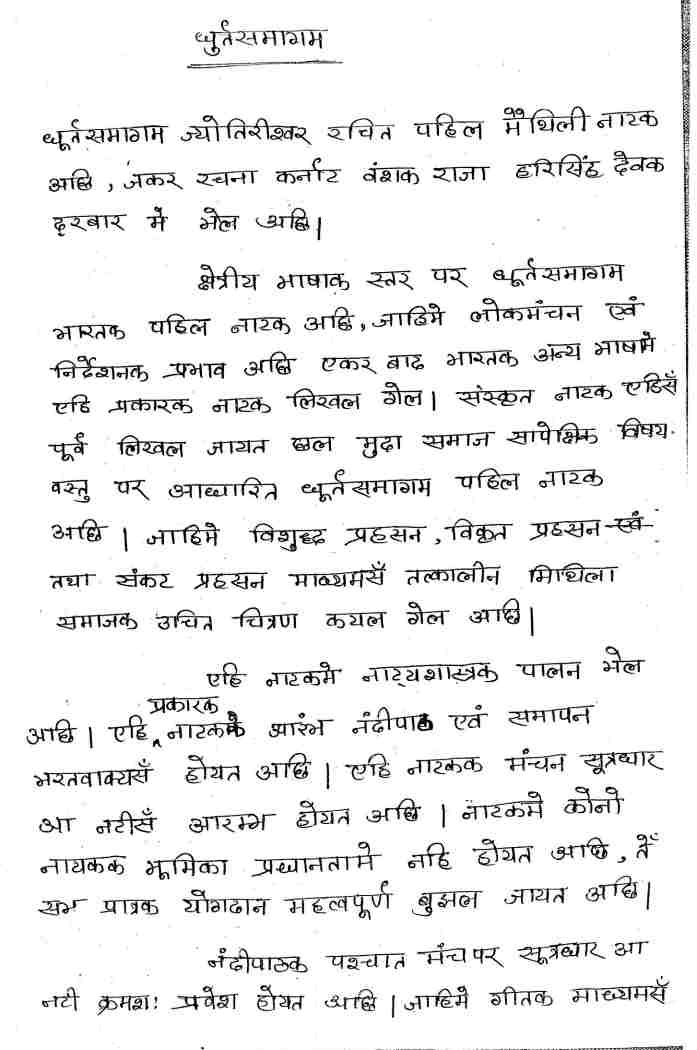 धुर्तसमागम
धूर्तसमागम ज्योतिरीश्वर रचित पहिल मैथिली नाटक
अछि, जकर रचना कर्नाट वंशक राजा हरिसिंह देवक
दरबार मे भेल अछि।
क्षेत्रीय भाषाक स्तर पर धूर्तसमागम
भारतक पहिल नाटक अछि, जाहिमे लोकमंचन एवं
निर्देशनक प्रभाव अछि एकर बाद भारतक अन्य भाषामे
एहि प्रकारक नाटक लिखल गेल। संस्कृत नाटक एहिसँ
पूर्व लिखल जायत छल मुदा समाज सापेक्षिक विषय-
वस्तु पर आधारित धूर्तसमागम पहिल नाटक
अछि। जाहिमे विशुद्ध प्रहसन, विकृत प्रहसन एवं
तथा संकट प्रहसन माध्यमसँ तत्कालीन मिथिला
समाजक उचित चित्रण कयल गेल अछि।
एहि नाटकमे नाट्यशास्त्रक पालन भेल
अछि। एहि प्रकारक नाटकक आरंभ नंदीपाठ एवं समापन
भरतवाक्यसँ होयत अछि। एहि नाटकक मंचन सूत्रधार
आ नटीसँ आरम्भ होयत अछि। नाटकमे कोनो
नायकक भूमिका प्रधानतामे नहि होयत अछि, तेँ
सभ पात्रक योगदान महत्वपूर्ण बुझल जायत अछि।
नंदीपाठक पश्चात मंचपर सूत्रधार आ
नटी क्रमश: प्रवेश होयत अछि। जाहिमे गीतक माध्यमसँ